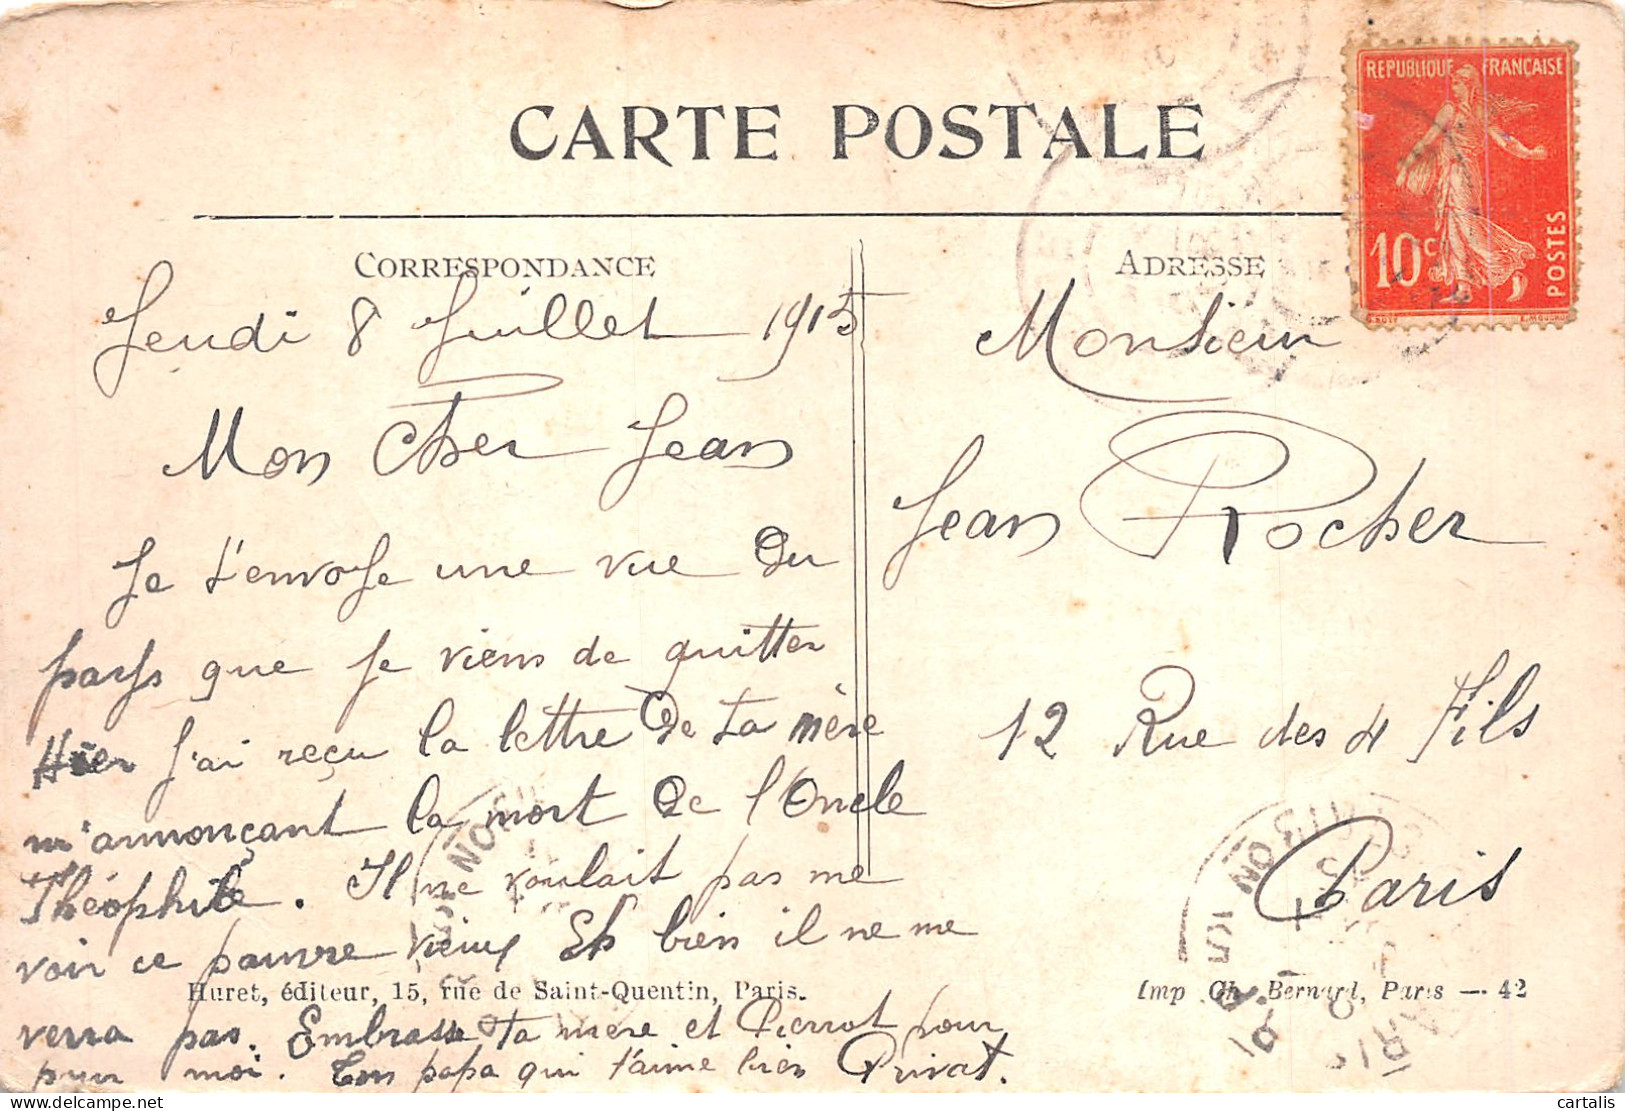 CARTE POSTALE
REPUBLIQUE FRANÇAISE
10c
POSTES
CORRESPONDANCE
Jeudi 8 Juillet 1915
Mon Cher Jean
Je t'envoye une vue du
pays que je viens de quitter
Hier j'ai reçu la lettre de ta mère
m'annonçant la mort de l'Oncle
Théophile. Il ne voulait pas me
voir ce pauvre vieux Eh bien il ne me
Huret, éditeur, 15, rue de Saint-Quentin, Paris.
verra pas. Embrasse ta mère et Pierrot pour
pour moi. Ton papa qui t'aime bien Privat.
ADRESSE
Monsieur
Jean Rocher
12 Rue des 4 Fils
Paris
Imp Ch. Bernard, Paris — 42
cartalis
delcampe.net